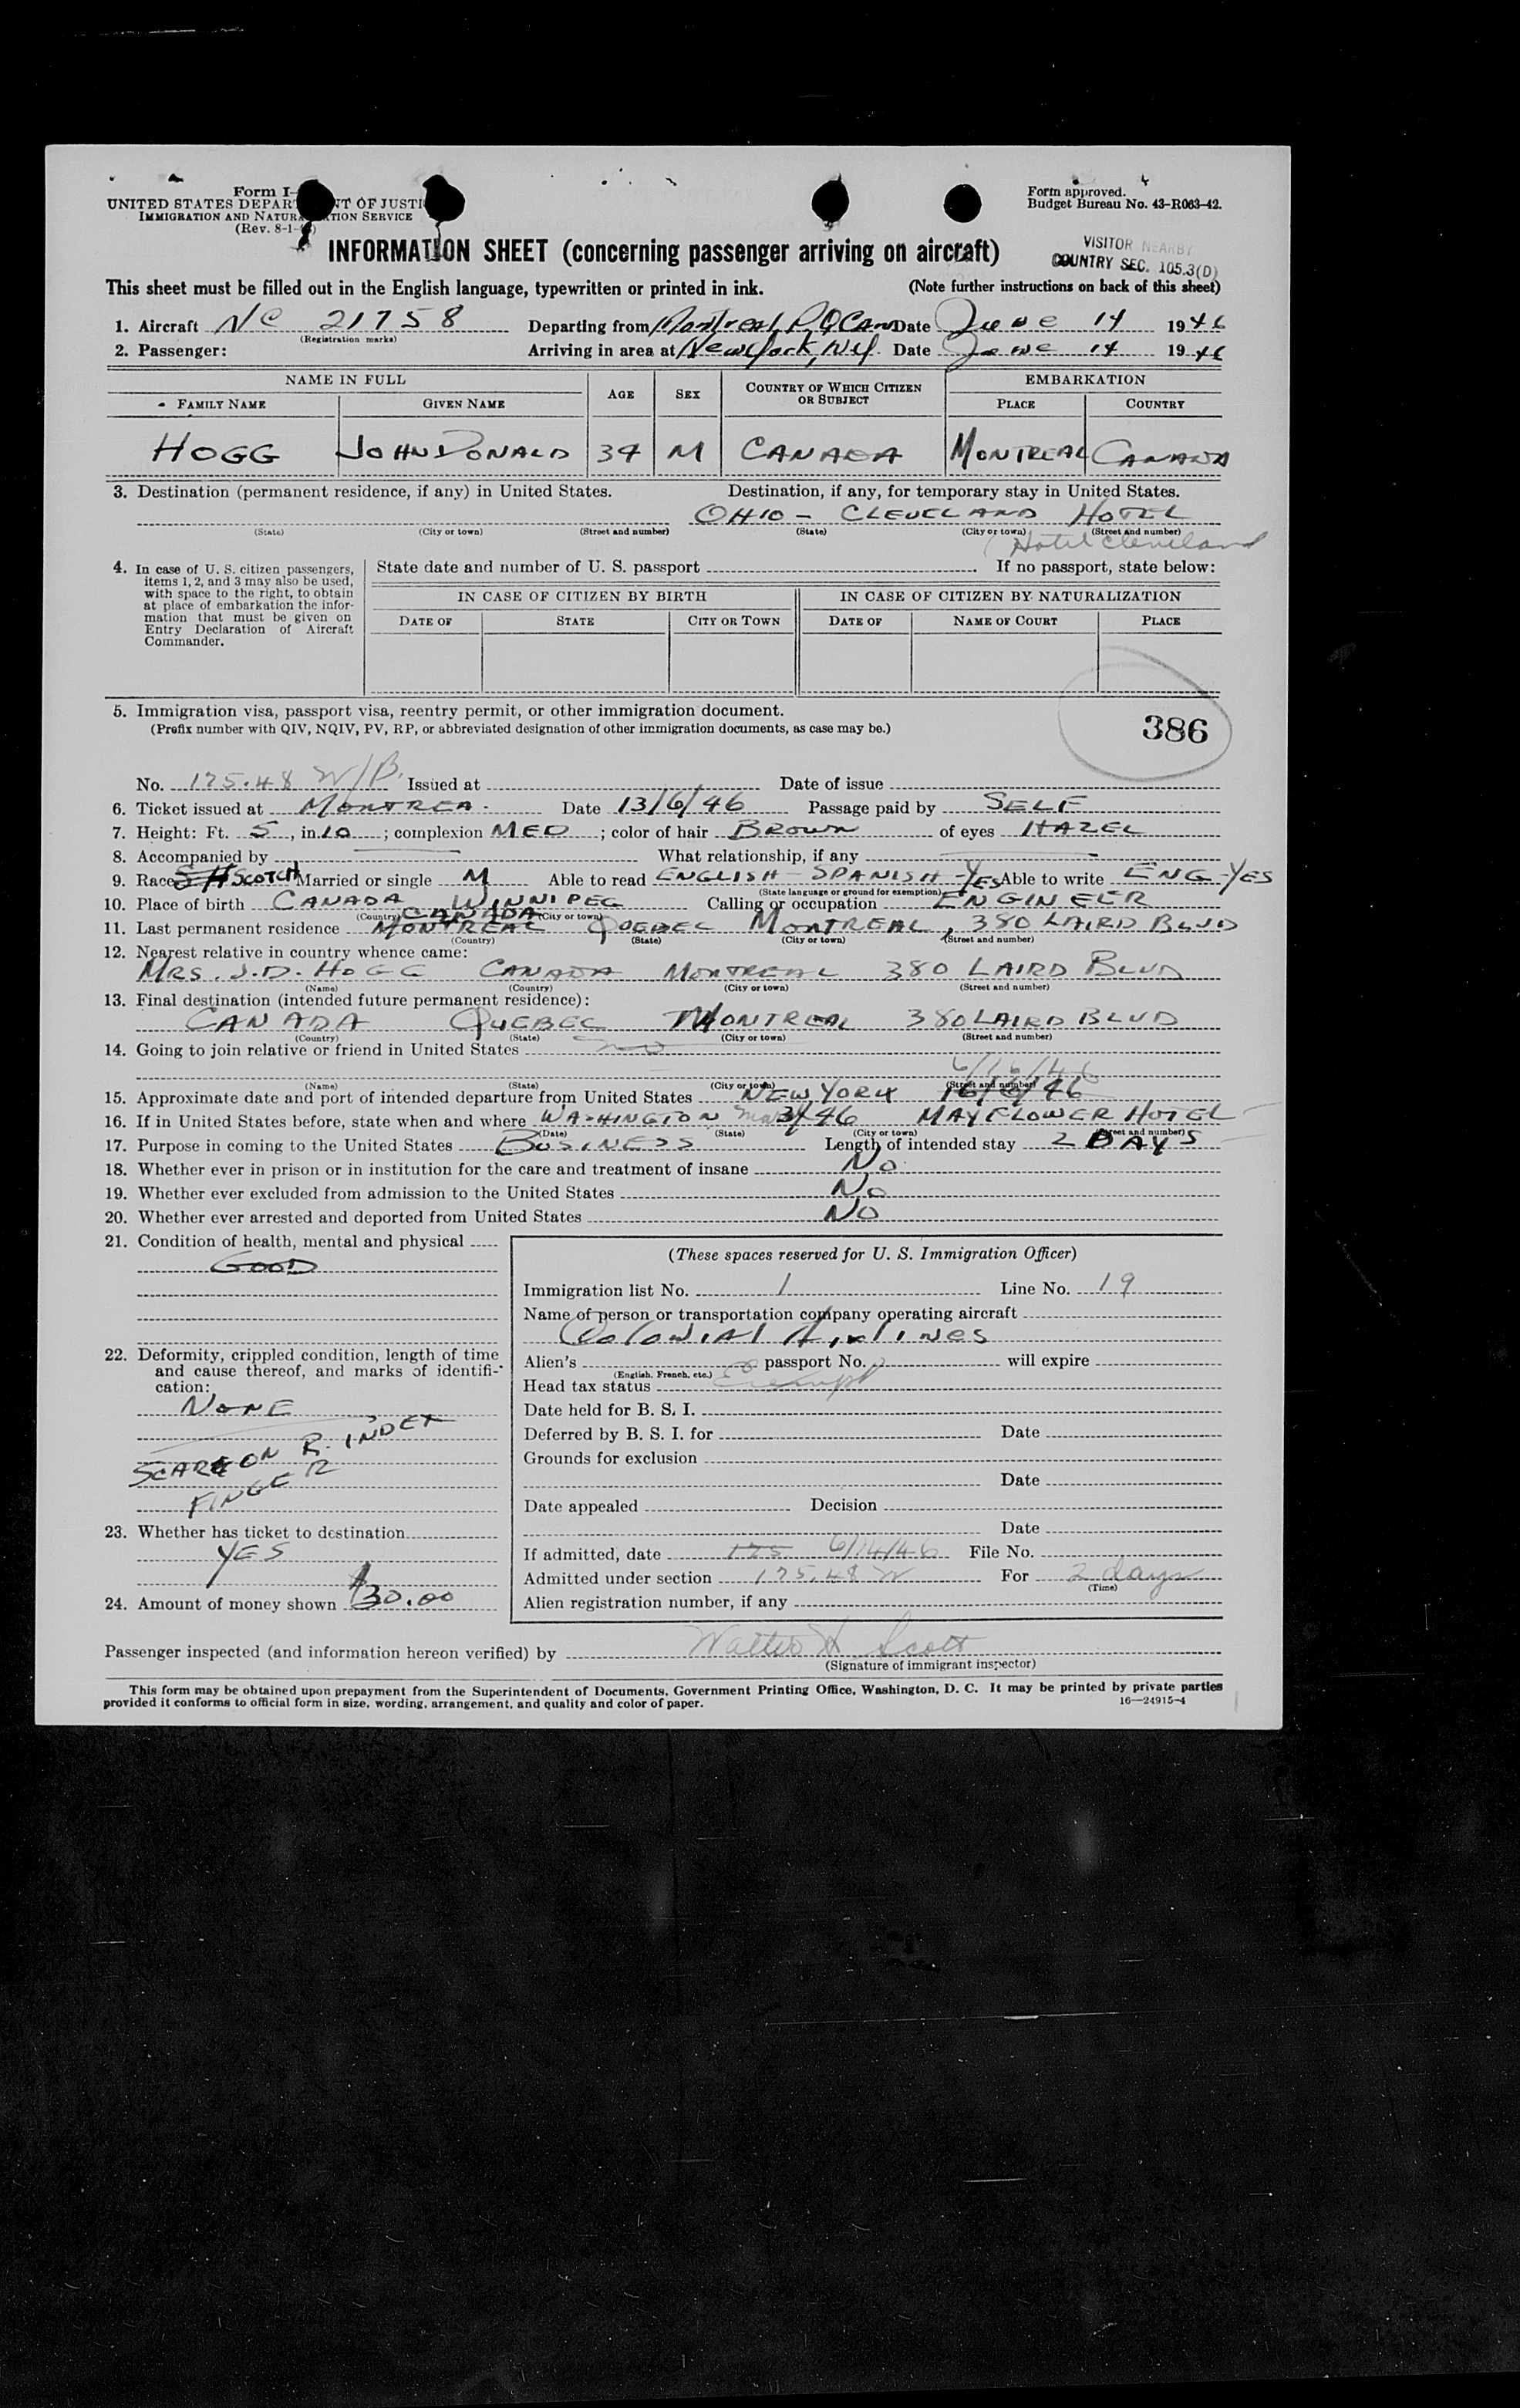 Form I-
UNITED STATES DEPARTMENT OF JUSTICE
IMMIGRATION AND NATURALIZATION SERVICE
(Rev. 8-1-
Form approved.
Budget Bureau No. 43-R063-42.
INFORMATION SHEET (concerning passenger arriving on aircraft)
VISITOR NEARBY
COUNTRY SEC. 105.3(D)
This sheet must be filled out in the English language, typewritten or printed in ink. (Note further instructions on back of this sheet)
1. Aircraft NC 21758 Departing from Montreal, P.Q. Can Date June 14 1946
(Registration marks)
2. Passenger: Arriving in area at New York, NY. Date June 14 1946
NAME IN FULL AGE SEX COUNTRY OF WHICH CITIZEN OR SUBJECT EMBARKATION
FAMILY NAME GIVEN NAME PLACE COUNTRY
HOGG JOHN DONALD 34 M CANADA MONTREAL CANADA
3. Destination (permanent residence, if any) in United States. Destination, if any, for temporary stay in United States.
OHIO - CLEVELAND HOTEL
(State) (City or town) (Street and number) (State) (City or town) (Street and number)
Hotel Cleveland
4. In case of U. S. citizen passengers, items 1, 2, and 3 may also be used, with space to the right, to obtain at place of embarkation the information that must be given on Entry Declaration of Aircraft Commander.
State date and number of U. S. passport If no passport, state below:
IN CASE OF CITIZEN BY BIRTH IN CASE OF CITIZEN BY NATURALIZATION
DATE OF STATE CITY OR TOWN DATE OF NAME OF COURT PLACE
5. Immigration visa, passport visa, reentry permit, or other immigration document.
(Prefix number with QIV, NQIV, PV, RP, or abbreviated designation of other immigration documents, as case may be.)
386
No. 175.48 W/B. Issued at Date of issue
6. Ticket issued at MONTREA. Date 13/6/46 Passage paid by SELF
7. Height: Ft. 5, in. 10; complexion MED; color of hair BROWN of eyes HAZEL
8. Accompanied by What relationship, if any
9. Race SCOTCH Married or single M Able to read ENGLISH - SPANISH - YES Able to write ENG - YES
(State language or ground for exemption)
10. Place of birth CANADA WINNIPEG Calling or occupation ENGINEER
(Country) (City or town)
CANADA
11. Last permanent residence MONTREAL QUEBEC MONTREAL, 380 LAIRD BLVD
(Country) (State) (City or town) (Street and number)
12. Nearest relative in country whence came:
MRS. J.D. HOGG CANADA MONTREAL 380 LAIRD BLVD
(Name) (Country) (City or town) (Street and number)
13. Final destination (intended future permanent residence):
CANADA QUEBEC MONTREAL 380 LAIRD BLVD
(Country) (State) (City or town) (Street and number)
14. Going to join relative or friend in United States no
6/16/46
(Name) (State) (City or town) (Street and number)
15. Approximate date and port of intended departure from United States NEW YORK 16/6/46
16. If in United States before, state when and where WASHINGTON Mar 3/46 MAYFLOWER HOTEL
(Date) (State) (City or town) (Street and number)
17. Purpose in coming to the United States BUSINESS Length of intended stay 2 DAYS
18. Whether ever in prison or in institution for the care and treatment of insane No
19. Whether ever excluded from admission to the United States No
20. Whether ever arrested and deported from United States No
21. Condition of health, mental and physical
GOOD
22. Deformity, crippled condition, length of time and cause thereof, and marks of identification:
NONE
SCAR ON R. INDEX
FINGER
23. Whether has ticket to destination
YES
24. Amount of money shown $30.00
(These spaces reserved for U. S. Immigration Officer)
Immigration list No. 1 Line No. 19
Name of person or transportation company operating aircraft
Colonial Airlines
Alien's passport No. will expire
(English, French, etc.)
Head tax status Exempt
Date held for B. S. I.
Deferred by B. S. I. for Date
Grounds for exclusion
Date
Date appealed Decision
Date
If admitted, date 175 6/14/46 File No.
Admitted under section 175.48 W For 2 days
(Time)
Alien registration number, if any
Passenger inspected (and information hereon verified) by Walter H Scott
(Signature of immigrant inspector)
This form may be obtained upon prepayment from the Superintendent of Documents, Government Printing Office, Washington, D. C. It may be printed by private parties
provided it conforms to official form in size, wording, arrangement, and quality and color of paper. 16—24915-4